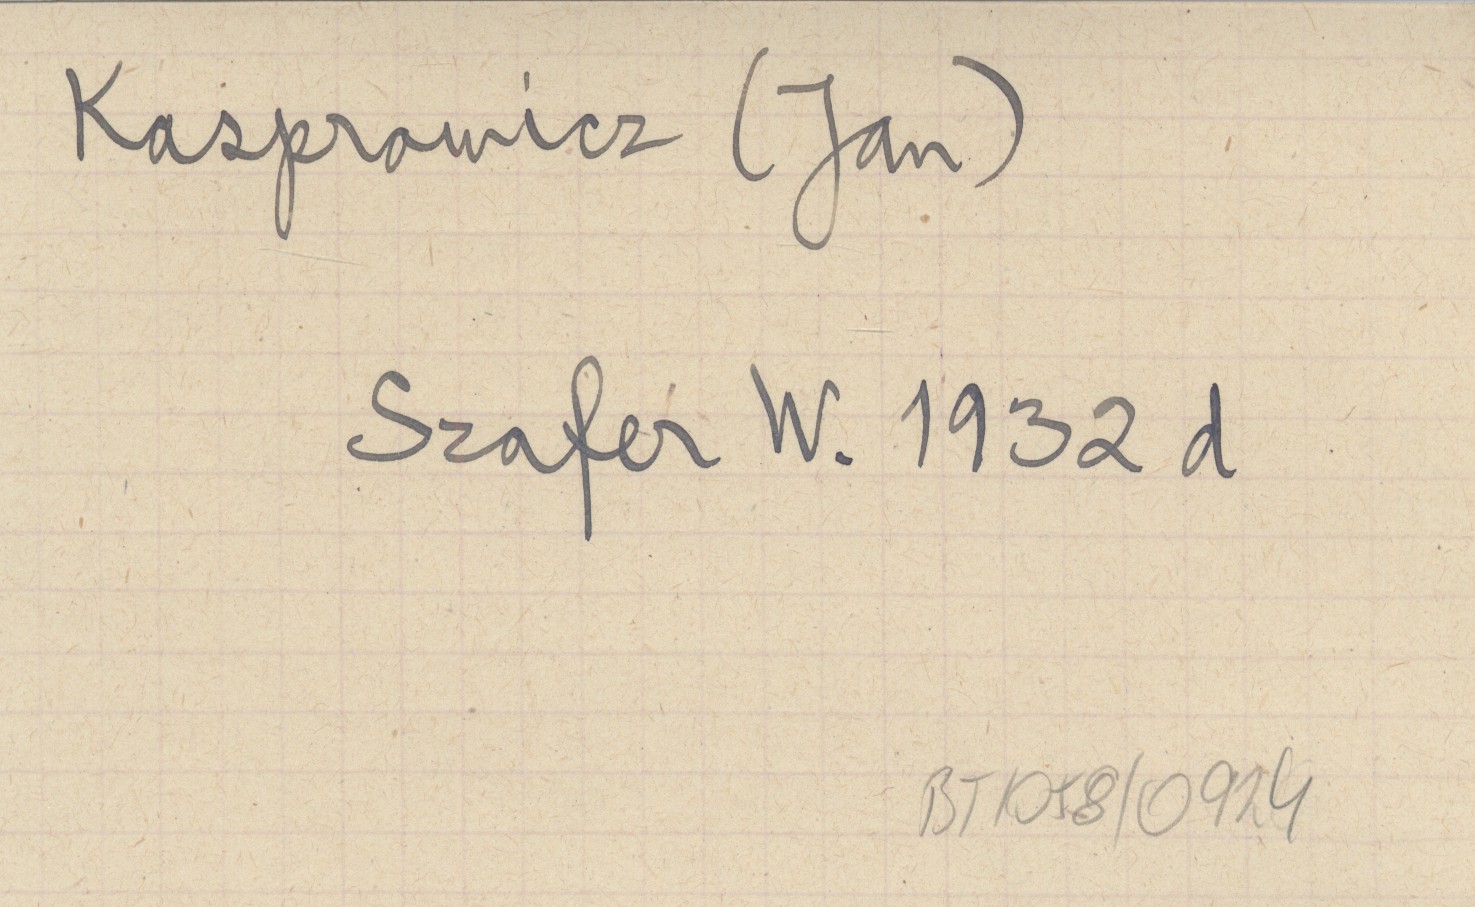 Kasprowicz (Jan)
Szafer W. 1932 d
BT1058/0924